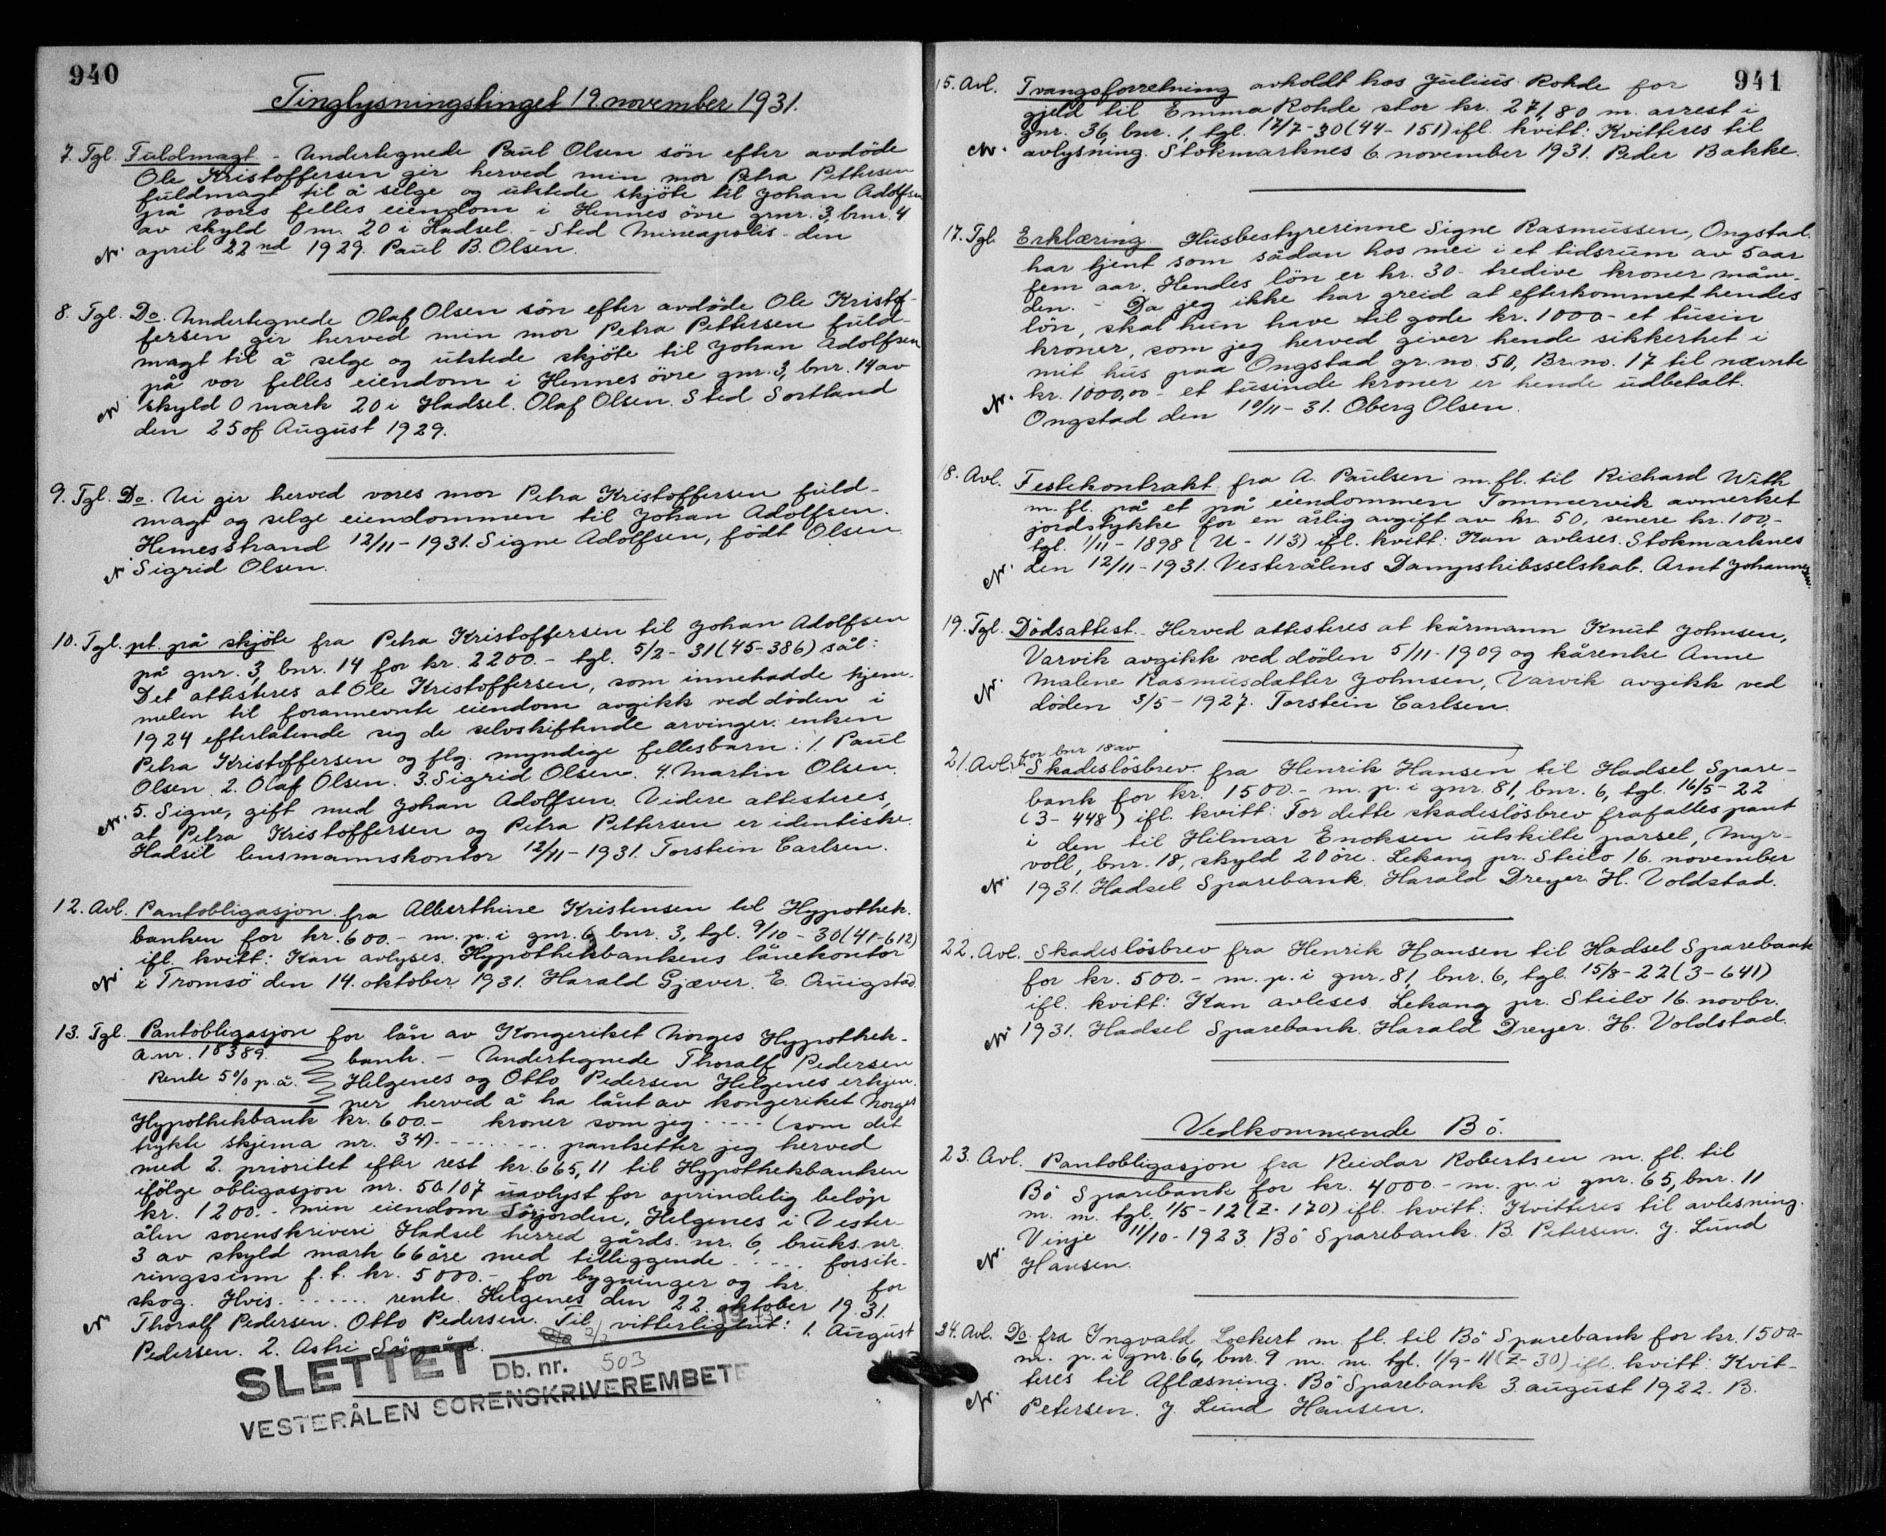 940
Tinglysningstinget 19 november 1931.
7. Tgl. Fuldmagt - Undertegnede Paul Olsen sön efter avdöde
Ole Kristoffersen gir herved min mor Petra Pettersen
fuldmagt til å selge og utstede skjöte til Johan Adolfsen
på vores felles eiendom i Hennes övre grnr. 3, brnr. 4
av skyld 0 m. 20 i Hadsel. - Sted Mineapolis - den
april 22nd 1929. Paul B. Olsen.
8. Tgl. Do. Undertegnede Olaf Olsen sön efter avdöde Ole Kristof-
fersen gir herved min mor Petra Pettersen fuld-
magt til å selge og utstede skjöte til Johan Adolfsen
på vor felles eiendom i Hennes övre gnr. 3, bnr. 14 av
skyld 0 mark 20 i Hadsel. Olaf Olsen. Sted Sortland
den 25 of August 1929.
9. Tgl. Do. Vi gir herved vores mor Petra Kristoffersen fuld-
magt og selge eiendommen til Johan Adolfsen.
Hennesstrand 12/11 - 1931. Signe Adolfsen, födt Olsen
Sigrid Olsen.
10. Tgl. pt. på skjöte fra Petra Kristoffersen til Johan Adolfsen
på gnr. 3, bnr. 14 for kr. 2200.- tgl. 5/2 - 31 (45-386) sål:
Det attesteres at Ole Kristoffersen, som innehadde hjem-
melen til forannevnte eiendom avgikk ved döden i
1924 efterlatende sig de selvskiftende arvinger: enken
Petra Kristoffersen og flg. myndige fellesbarn: 1. Paul
Olsen. 2. Olaf Olsen. 3. Sigrid Olsen. 4. Martin Olsen.
5. Signe, gift med Johan Adolfsen. Videre attesteres,
at Petra Kristoffersen og Petra Pettersen er identiske.
Hadsel lensmannskontor 12/11 - 1931. Torstein Carlsen.
12. Avl. Pantobligasjon fra Alberthine Kristensen til Hypothek-
banken for kr. 600.- m. p. i gnr. 6, bnr. 3, tgl. 9/10 - 30 (41-612)
ifl. kvitt: Kan avlyses. Hypothekbankens lånekontor
i Tromsö den 14. oktober 1931. Harald Gjæver. E. Quigstad
13. Tgl. Pantobligasjon for lån av Kongeriket Norges Hypothek-
a.nr. 18389. bank. - Undertegnede Thoralf Pedersen
Rente 5% p. å. Helgenes og Otto Pedersen Helgenes erkjen-
ner herved å ha lånt av kongeriket Norges
Hypothekbank kr. 600.- kroner som jeg ..... (som det
trykte skjema nr. 34). ........ pantsetter jeg herved
med 2. prioritet efter rest kr. 665,11 til Hypothekbanken
ifölge obligasjon nr. 50107 uavlyst for oprindelig belöp
kr. 1200.- min eiendom Sörjorden, Helgenes i Vester-
ålen sorenskriveri Hadsel herred gårds. nr. 6, bruks. nr.
3 av skyld mark 66 öre med tilliggende ..... forsik-
ringssum f. t. kr. 5000.- for bygninger og kr. for
skog. Hvis ...... rente. Helgenes den 22. oktober 1931.
Thoralf Pedersen. Otto Pedersen. Til vitterlighet: 1. August
Pedersen. 2. Astri
SLETTET
Db. nr. 503
VESTERÅLEN SORENSKRIVEREMBETE
941
15. Avl. Tvangsforretning avholdt hos Julius Rohde for
gjeld til Emma Rohde stor kr. 271,80 m. arrest i
gnr. 36, bnr. 1, tgl. 17/7-30 (44-151) ifl. kvitt: Kvitteres til
avlysning. Stokmarknes 6 november 1931. Peder Bakke.
17. Tgl. Erklæring Husbestyrerinne Signe Rasmussen, Ongstad
har tjent som sådan hos mei i et tidsrum av 5 aar
fem aar. Hendes lön er kr. 30 - tredive kroner måne-
den. - Da jeg ikke har greid at efterkommet hendes
lön, skal hun have til gode kr. 1000 - et tusin
kroner, som jeg herved giver hende sikkerhet i
mit hus paa Ongstad gr. no. 50, Br. no. 17 til nævnte
kr. 1000,00 - et tusinde kroner er hende udbetalt.
Ongstad den 10/11 - 31. Oberg Olsen.
18. Avl. Festekontrakt fra A. Paulsen m. fl. til Richard With
m. fl. på et på eiendommen Tommervik avmerket
jordstykke for en årlig avgift av kr. 50, senere kr. 100,-
tgl. 1/11 - 1898 (U - 113) ifl. kvitt: Kan avleses. Stokmarknes
den 12/11 - 1931. Vesterålens Dampskibsselskab. Arnt Johannesen
19. Tgl. Dödsattest. Herved attesteres at kårmann Knut Johnsen,
Varvik avgikk ved döden 5/11 - 1909 og kårenke Anne
Malene Rasmusdatter Johnsen, Varvik avgikk ved
döden 3/5 - 1927. Torstein Carlsen.
for bnr 18 av
21. Avl. Skadeslösbrev fra Henrik Hansen til Hadsel Spare-
bank for kr. 1500.- m. p. i gnr. 81, bnr. 6, tgl. 16/5 - 22
(3 - 448) ifl. kvitt: For dette skadeslösbrev frafalles pant
i den til Hilmar Enoksen utskilte parsel, Myr-
voll, bnr. 18, skyld 20 öre. Lekang pr. Steilo 16. november
1931. Hadsel Sparebank. Harald Dreyer. H. Voldstad.
22. Avl. Skadeslösbrev fra Henrik Hansen til Hadsel Sparebank
for kr. 500.- m. p. i gnr. 81, bnr. 6, tgl. 15/8 - 22 (3-641)
ifl. kvitt: Kan avleses. Lekang pr. Steilo 16. novbr.
1931. Hadsel Sparebank. Harald Dreyer. H. Voldstad.
Vedkommende Bö.
23. Avl. Pantobligasjon fra Reidar Robertsen m. fl. til
Bö Sparebank for kr. 4000.- m. p. i gnr. 65, bnr. 11
m. m. tgl. 1/5 - 12 (Z - 170) ifl. kvitt: Kvitteres til avlesning.
Vinje 11/10 - 1923. Bö Sparebank. B. Petersen. J. Lund
Hansen.
24. Avl. Do fra Ingvald Lockert m. fl. til Bö Sparebank for kr. 1500-
m. p. i gnr. 66, bnr. 9 m. m. tgl. 1/9 - 11 (Z - 30) ifl. kvitt: Kvit-
teres til Aflæsning. Bö Sparebank 3 august 1922. B.
Petersen. J. Lund Hansen.